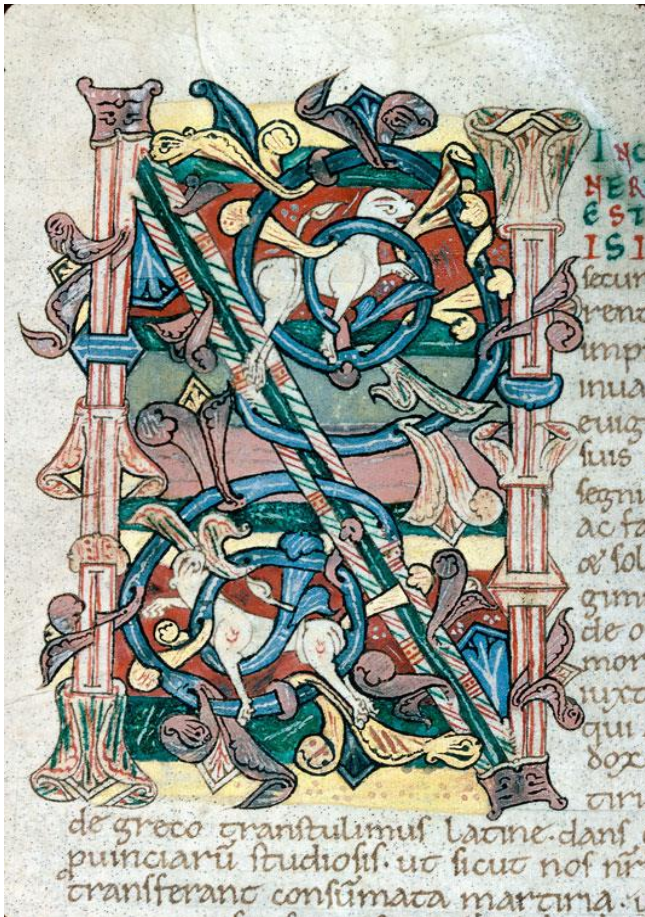 N
INC
NER
EST
ISI
secun
rent
imp
inua
euig
suis
segni
ac fa
sol
gimi
de o
mor
iuxt
qui
dox
tiri
de greco transtulimus latine. dans
puinciarū studiosis. ut sicut nos nr̄
transferant consūmata martiria.